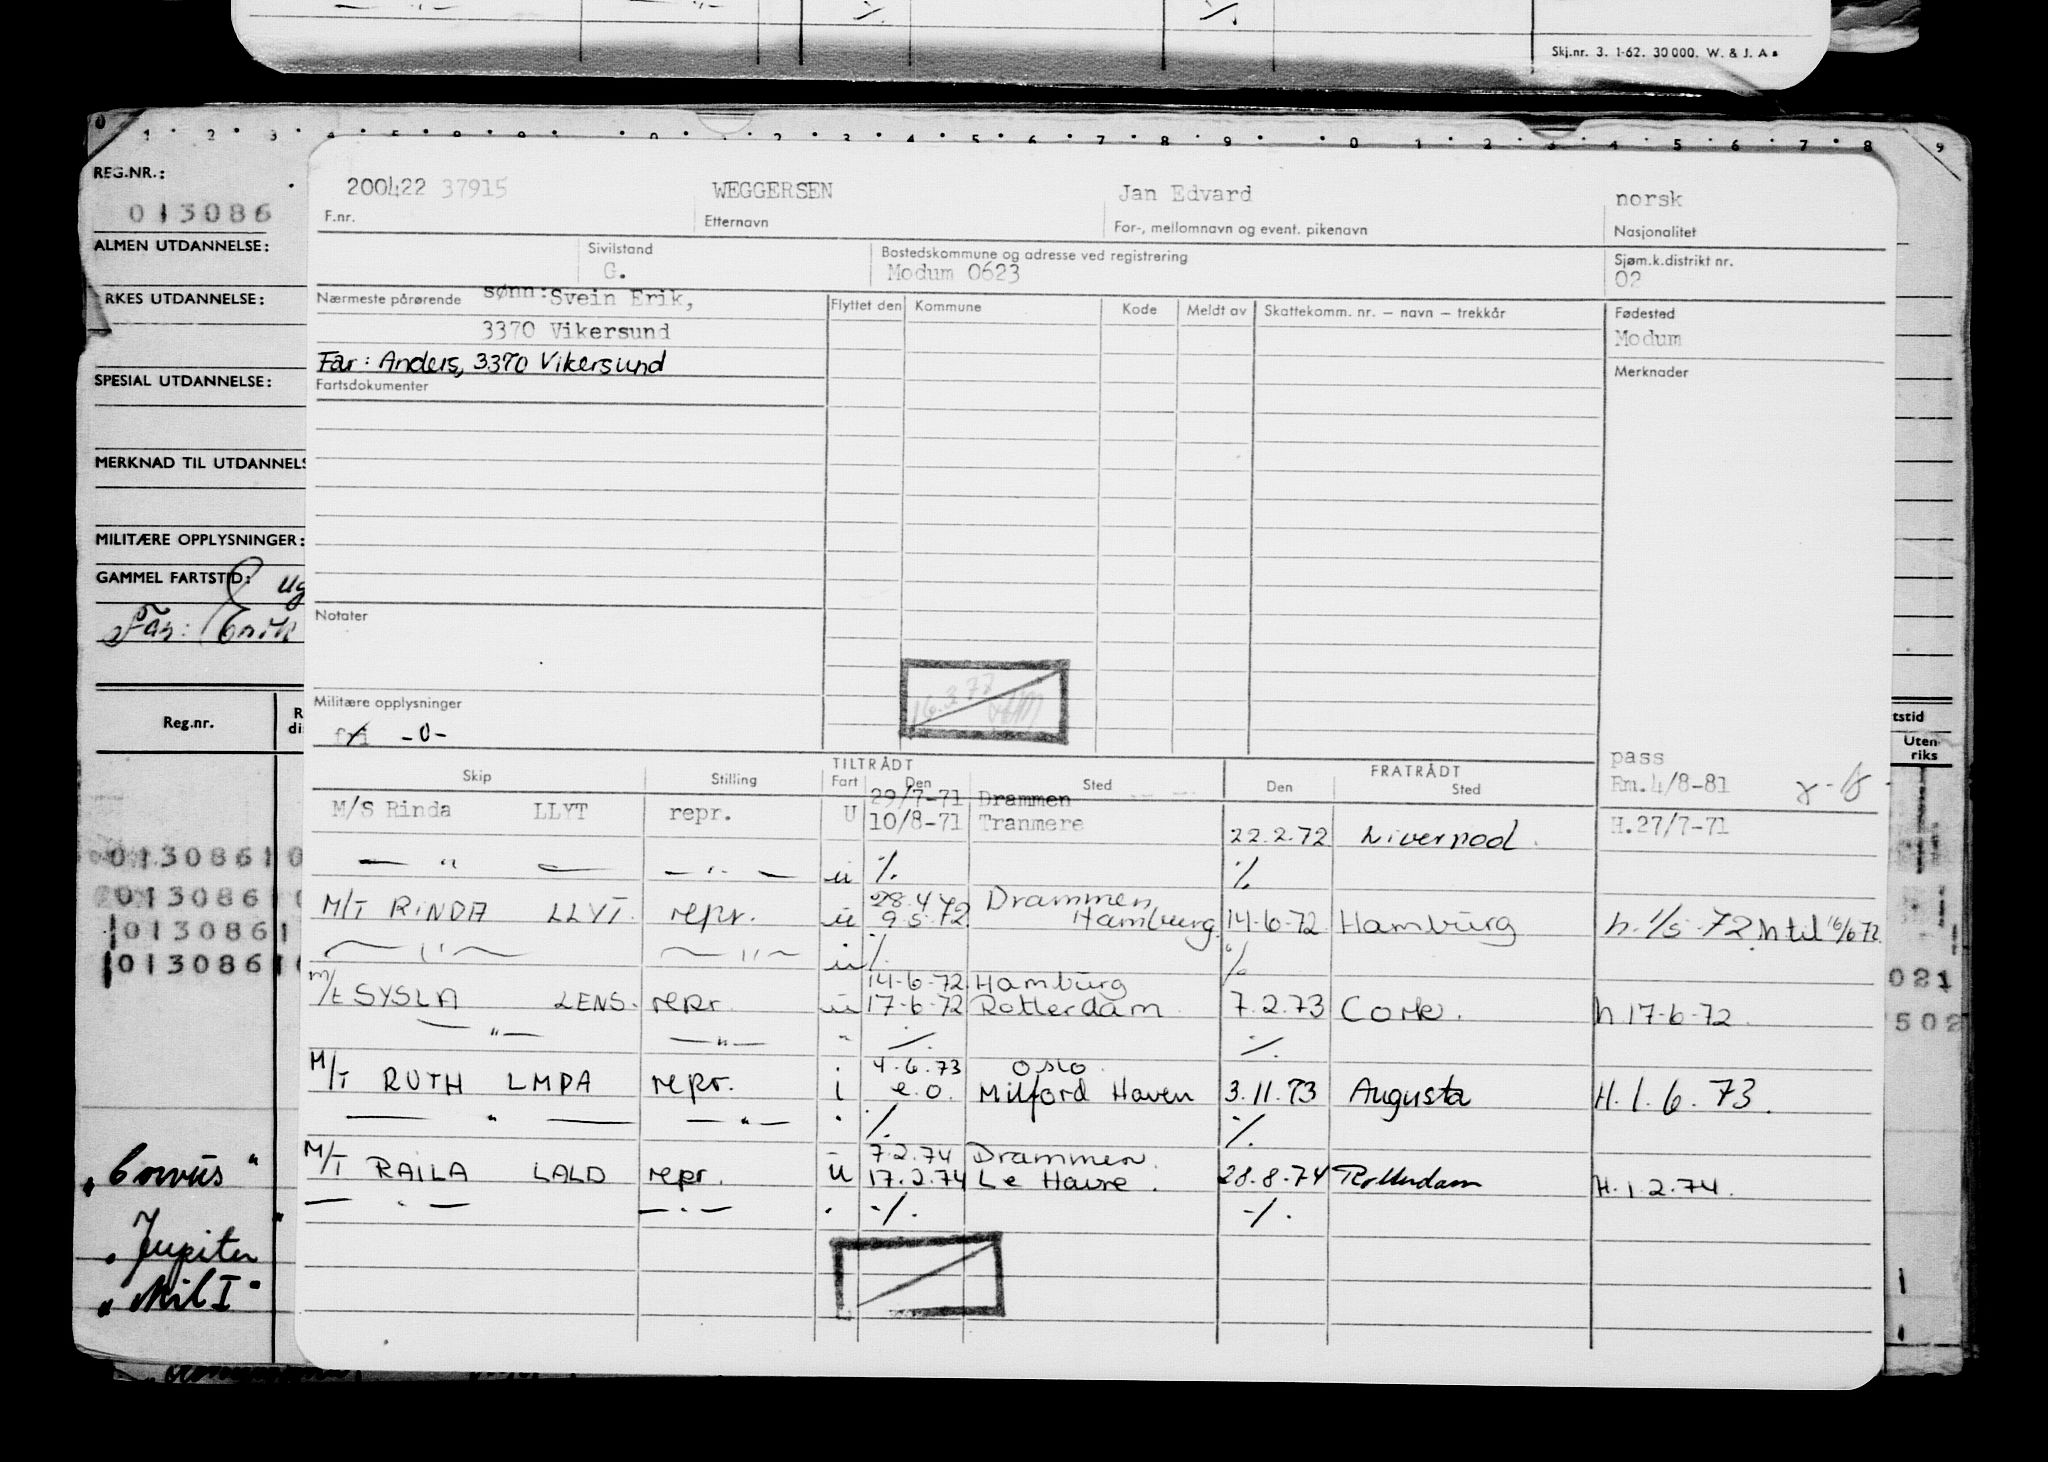 Skj.nr. 3. 1-62. 30 000. W. & J. A.
REG.NR.:
013086
ALMEN UTDANNELSE:
RKES UTDANNELSE:
SPESIAL UTDANNELSE:
MERKNAD TIL UTDANNELS
MILITÆRE OPPLYSNINGER:
GAMMEL FARTSTID:
Far: Erik
Reg.nr.
0130861
0130861
0130861
0130861
"Corvus"
"Jupiter"
"Nil I"
200422 37915 WEGGERSEN Jan Edvard norsk
F.nr. Etternavn For-, mellomnavn og event. pikenavn Nasjonalitet
Sivilstand Bostedskommune og adresse ved registrering Sjøm.k.distrikt nr.
G. Modum 0623 02
Nærmeste pårørende sønn: Svein Erik, Flyttet den Kommune Kode Meldt av Skattekomm. nr. — navn — trekkår Fødested
3370 Vikersund Modum
Far: Anders, 3370 Vikersund Merknader
Fartsdokumenter
Notater
16.3.77
Militære opplysninger
fri -0-
pass
Rm. 4/8-81
TILTRÅDT FRATRÅDT
Skip Stilling Fart Den Sted Den Sted
29/7-71 Drammen
M/S Rinda LLYT repr. U 10/8-71 Tranmere 22.2.72 Liverpool. H.27/7-71
— " — — " — u ./. ./.
28.4.72 Drammen
M/T RINDA LLYT. repr. u 9.5.72 Hamburg. 14-6-72 Hamburg h. 1/5-72 h til 16/6 72.
— " — — " — u ./. ./.
14-6-72 Hamburg
M/t SYSLA LENS. repr. u 17-6-72 Rotterdam 7.2.73 Cork. h 17-6-72.
— " — — " — " ./. ./.
4.6.73 Oslo
M/T RUTH LMPA repr. i e.o. Milford Haven 3.11.73 Augusta H.1.6.73.
— " — — " — " ./. ./.
7.2.74 Drammen.
M/T RAILA LALD repr. u 17.2.74 Le Havre. 28.8.74 Rotterdam H.1.2.74.
— " — — " — " ./. ./.
tstid
Uten-
riks
021
502